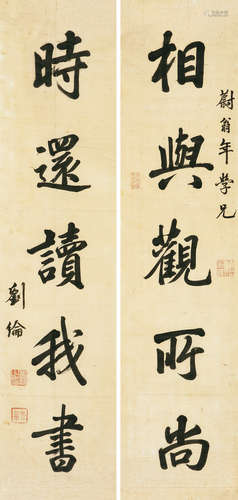 蔚翁年學兄
相與觀所尚
時還讀我書
劉綸